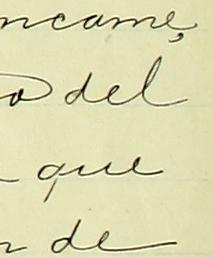 ncame,
o del
que
n de